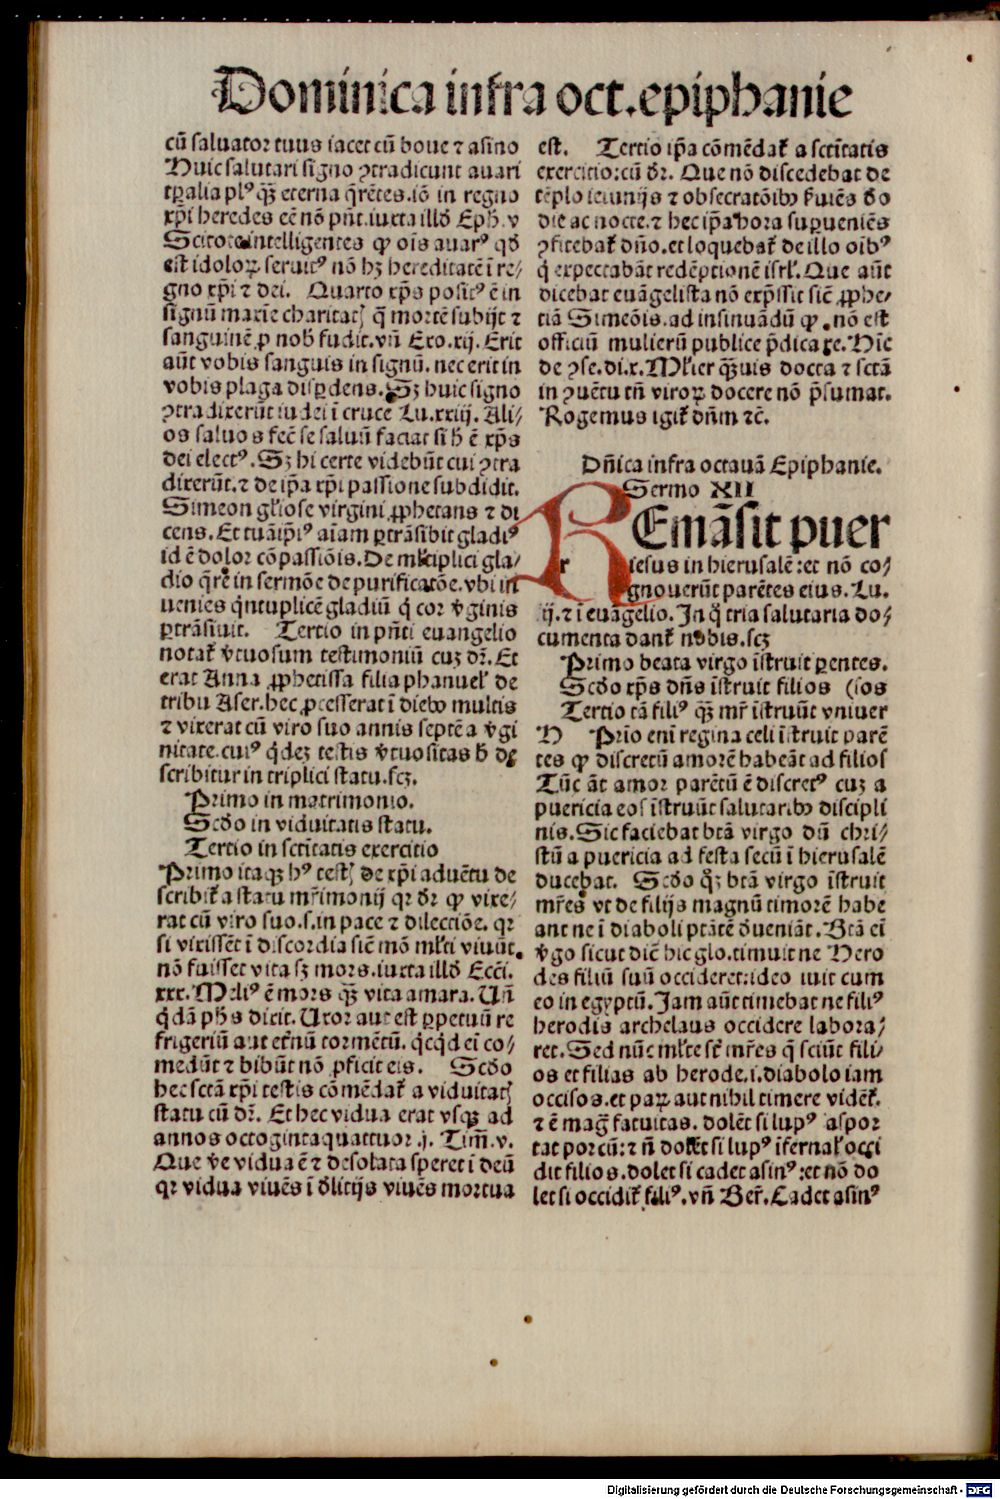 Dominica infra oct. epiphanie
cū saluator tuus iacet cū boue ⁊ asino
Huic salutari signo ꝯtradicunt auari
tꝑalia plꝰ ꝙ̄ eterna q̄rētes. iō in regno
xp̄i heredes eē nō pn̄t. iuxta illđ Eph. v
Scitote intelligentes ꝙ oīs auarꝰ qđ
est idoloꝝ seruitꝰ nō hꝫ hereditatē ī re⸗
gno xp̄i ⁊ dei. Quarto xp̄s positꝰ ē in
signū maxīe charitatꝭ q̄ mortē subijt ⁊
sanguinē ꝓ nob̄ fudit. vn̄ Exo. xij. Erit
aūt vobis sanguis in signū. nec erit in
vobis plaga disꝑdens. Sꝫ huic signo
ꝯtradixerūt iudei ī cruce Lu. xxiij. Ali⸗
os saluos fec̄ se saluū faciat si h̄ ē xp̄s
dei electꝰ. Sꝫ hi certe videbūt cui ꝯtra
dixerūt. ⁊ de ip̄a xp̄i passione subdidit.
Simeon gl̄iose virgini ꝓphetans ⁊ di
cens. Et tuā ip̄iꝰ aīam ꝑtrāsibit gladiꝰ
id ē dolor cōpassiōis. De ml̄tiplici gla⸗
dio q̄re in sermōe de purificatōe. vbi in
uenies q̄ntuplicē gladiū q̄ cor v̄ginis
ꝑtrāsiuit. Tertio in pn̄ti euangelio
notat̄ v̄tuosum testimoniū cuꝫ dr̄. Et
erat Anna ꝓphetissa filia phanuel̄ de
tribu Aser. hec ꝓcesserat ī diebꝰ multis
⁊ vixerat cū viro suo annis septē a v̄gi
nitate. cuiꝰ q̄deꝫ testis v̄tuositas h̄ de
scribitur in triplici statu. scꝫ.
Primo in matrimonio.
Scđo in viduitatis statu.
Tertio in sctītatis exercitio
Primo itaqꝫ hꝰ testꝭ de xp̄i aduētu de
scribit̄ a statu mr̄imonij qꝛ dr̄ ꝙ vixe⸗
rat cū viro suo. s. in pace ⁊ dilectiōe. qꝛ
si vixissēt ī discordia sicē mō ml̄ti viuūt.
nō fuisset vita sꝫ mors. iuxta illđ Ecci.
xxx. Meliꝰ ē mors ꝙ̄ vita amara. Un̄
q̄dā ph̄s dicit. Uxor aut est ꝑpetuū re
frigeriū aut et̄nū tormētū. q̄cq̄d ei co⸗
medūt ⁊ bibūt nō ꝓficit eis. Scđo
hec sctā xp̄i testis cōmēdat̄ a viduitatꝭ
statu cū dr̄. Et hec vidua erat vsqꝫ ad
annos octogintaquattuor. j. Tim̄. v.
Que v̄e vidua ē ⁊ desolata speret ī deū
qꝛ vidua viuēs ī đlitijs viuēs mortua
est. Tertio ip̄a cōmēdat̄ a sctītatis
exercitio: cū dr̄. Que nō discedebat de
tēplo ieiunijs ⁊ obsecratōibꝰ s̄uiēs đo
die ac nocte. ⁊ hec ip̄a hora suꝑueniēs
ꝯfitebat̄ dn̄o. et loquebat̄ de illo oībꝰ
q̄ expectabāt redēptionē isrl̄. Que aūt
dicebat euāgelista nō exp̄ssit sic̄ ꝓphe⸗
tiā Simeōis. ad insinuādū ꝙ nō est
officiū mulierū publice p̄dicare. Hīc
de ꝯse. di. x. Ml̄ier ꝙ̄uis docta ⁊ sctā
in ꝯuētu tn̄ viroꝝ docere nō p̄sumat.
Rogemus igit̄ dn̄m ⁊c̄.
Dn̄ica infra octauā Epiphanie.
Sermo XII
REmāsit puer
iesus in hierusalē: et nō co⸗
gnouerūt parētes eius. Lu.
ij. ⁊ ī euāgelio. In q̄ tria salutaria do⸗
cumenta dant̄ nobis. scꝫ
Primo beata virgo īstruit ꝑentes.
Scđo xp̄s dn̄s īstruit filios (sos
Tertio tā filiꝰ ꝙ̄ mr̄ īstruūt vniuer
H Prīo enī regina celi īstruit parē
tes ꝙ discretū amorē habeāt ad filios
Tūc āt amor parētū ē discretꝰ cuꝫ a
puericia eos īstruūt salutaribꝰ discipli
nis. Sic faciebat btā virgo dū chri⸗
stū a puericia ad festa secū ī hierusalē
ducebat. Scđo qꝫ btā virgo īstruit
mr̄es vt de filijs magnū timorē habe
ant ne ī diaboli ptātē đueniāt. Btā eī
v̄go sicut dic̄ hic glo. timuit ne Hero
des filiū suū occideret: ideo iuit cum
eo in egyptū. Jam aūt timebat ne filiꝰ
herodis archelaus occidere labora⸗
ret. Sed nūc ml̄te st̄ mr̄es q̄ sciūt fili⸗
os et filias ab herode. i. diabolo iam
occisos. et paꝝ aut nihil timere vidēt̄.
⁊ ē maḡ fatuitas. dolēt si lupꝰ aspor
tat porcū: ⁊ n̄ dolēt si lupꝰ īfernal̄ occi
dit filios. dolet si cadet asinꝰ: et nō do
let si occidit̄ filiꝰ. vn̄ Ber̄. Cadet asinꝰ
Digitalisierung gefördert durch die Deutsche Forschungsgemeinschaft - DFG